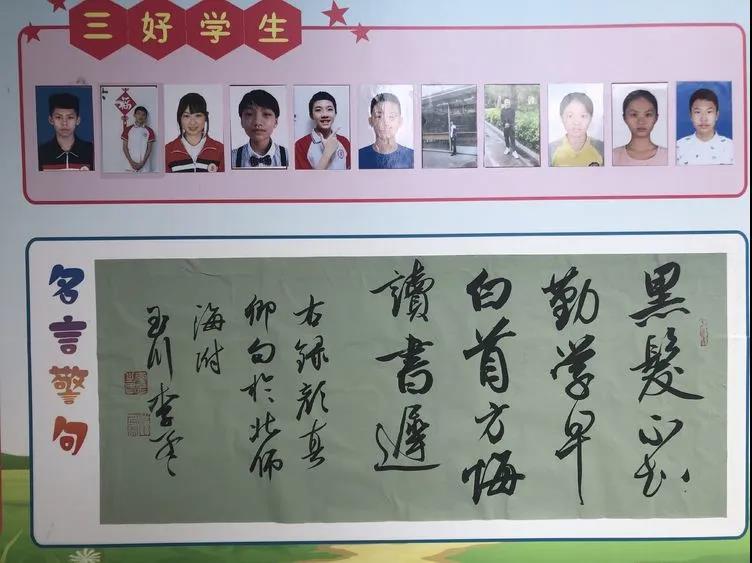 三好学生
福
名言警句
黑髮不知
勤學早
白首方悔
讀書遲
右録顏真
卿句於北師
海附
玉川李